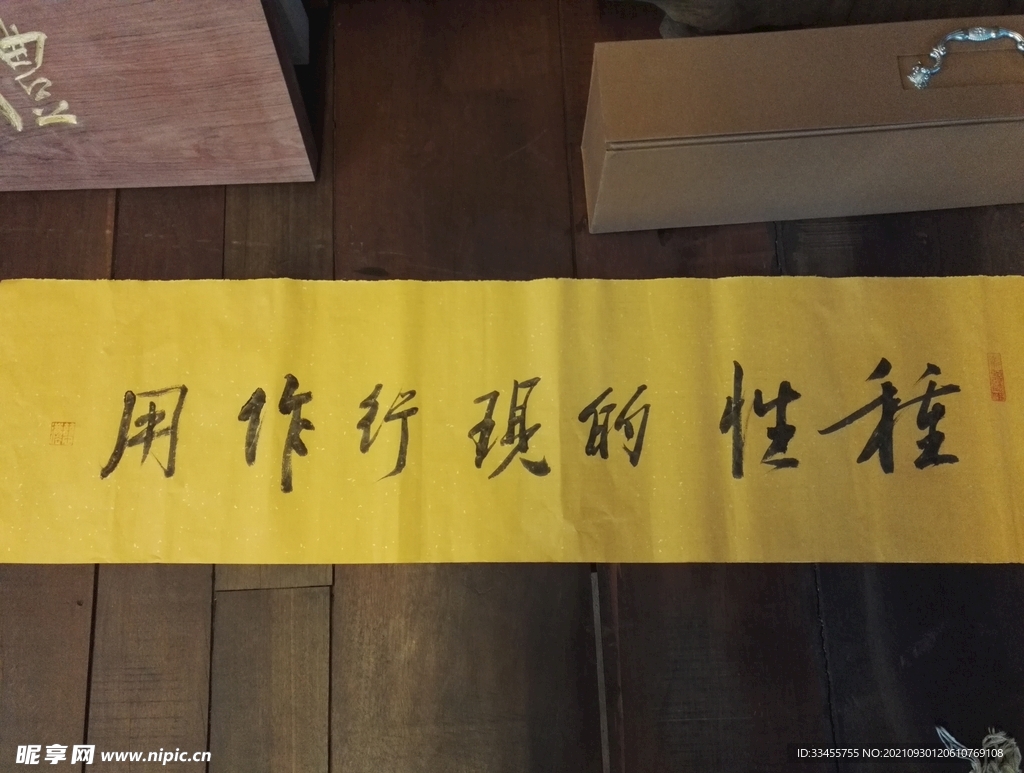 種性的現行作用
昵享网 www.nipic.cn
ID:33455755 NO:20210930120610769108